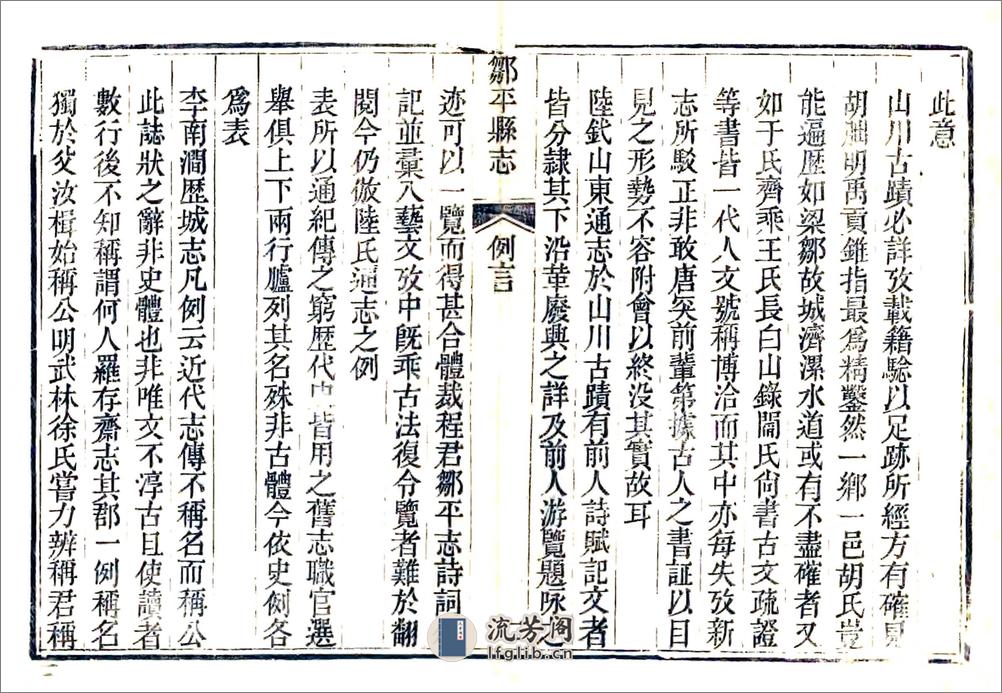 此意
山川古蹟必詳攷載籍驗以足跡所經方有確見
胡朏明禹貢錐指最爲精鑿然一鄉一邑胡氏豈
能遍歷如梁鄒故城濟漯水道或有不盡確者又
如于氏齊乘王氏長白山錄閻氏尚書古文疏證
等書皆一代人文號稱博洽而其中亦每失攷新
志所駁正非敢唐突前輩第據古人之書証以目
見之形勢不容附會以終没其實故耳
陸釴山東通志於山川古蹟有前人詩賦記文者
皆分隸其下沿革廢興之詳及前人游覽題咏之
鄒平縣志
例言
迹可以一覽而得甚合體裁程君鄒平志詩詞
記並彙入藝文攷中旣乖古法復令覽者難於翻
閱今仍倣陸氏通志之例
表所以通紀傳之窮歷代史皆用之舊志職官選
舉俱上下兩行臚列其名殊非古體今依史例各
爲表
李南澗歷城志凡例云近代志傳不稱名而稱公
此誌狀之辭非史體也非唯文不淳古且使讀者
數行後不知稱謂何人羅存齋志其郡一例稱名
獨於父汝楫始稱公明武林徐氏嘗力辨稱君稱
流芳阁
lfglib.cn